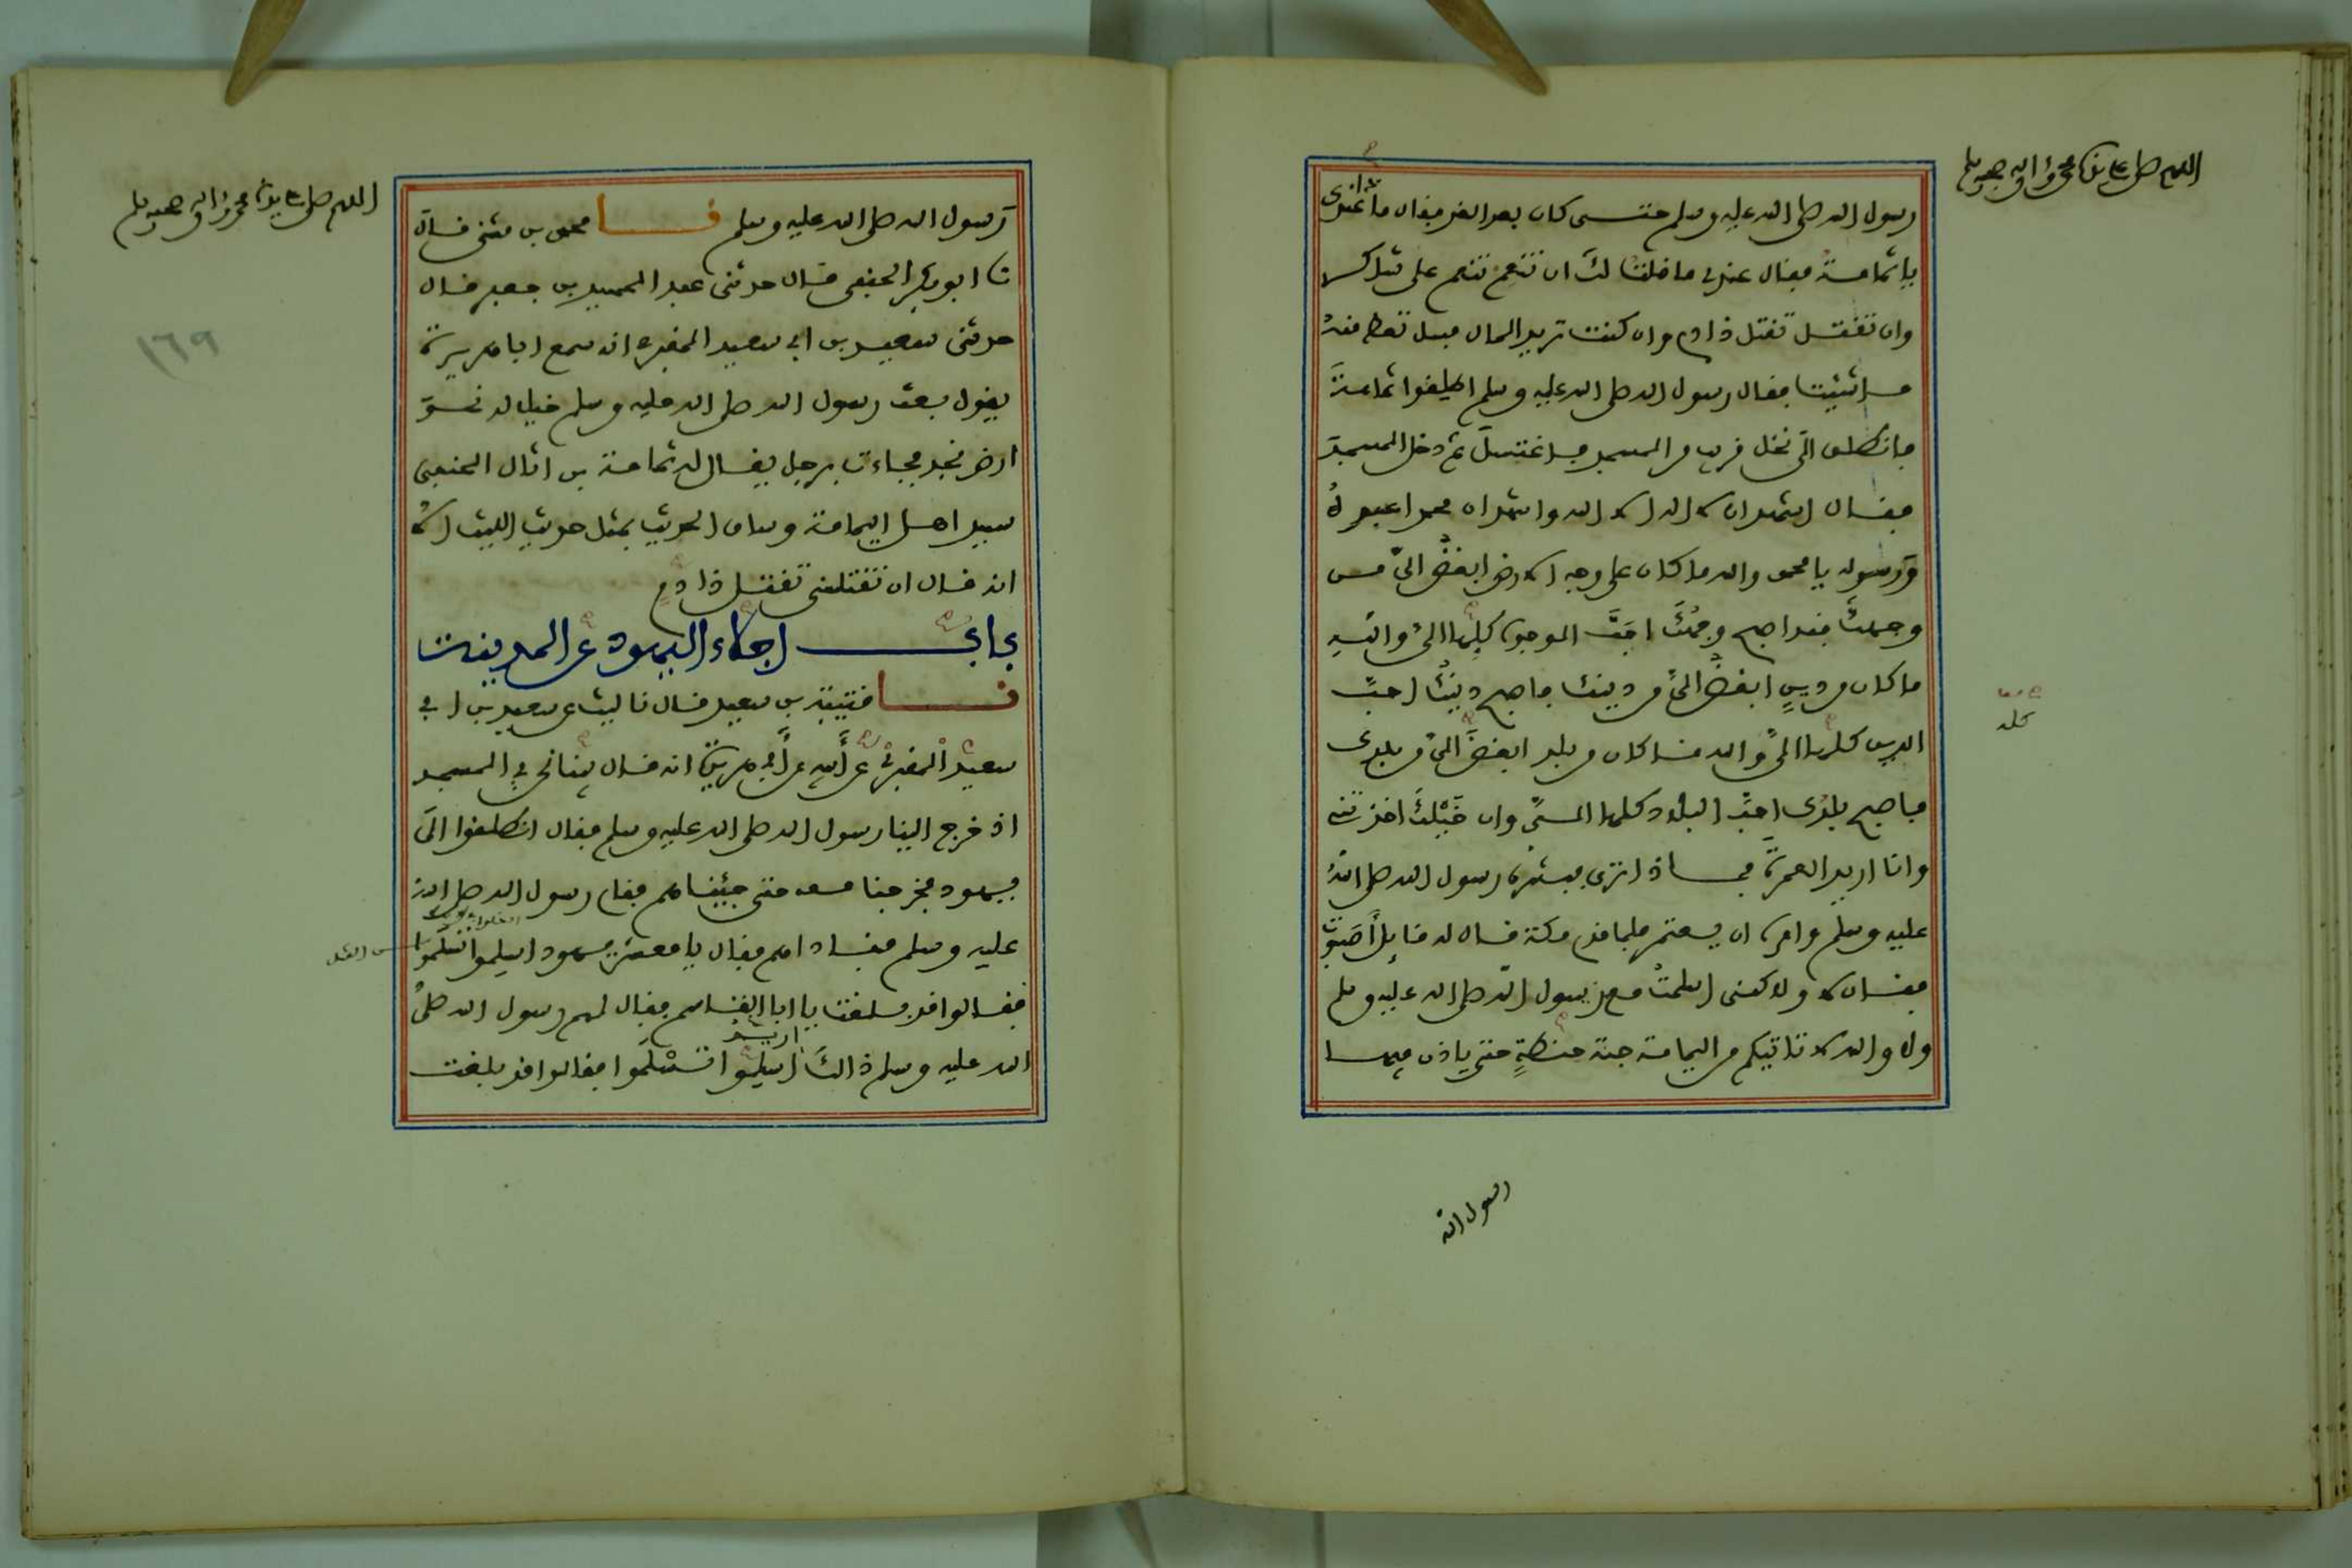 اللهم صل على سيدنا محمد واله وصحبه وسلم
رسول الله صلى الله عليه وسلم حتى كان بعد الغد فقال ماذا عندك
يا ثمامة فقال عندي ما قلت لك ان تنعم تنعم على شاكر
وان تقتل تقتل ذا دم وان كنت تريد المال فسل تعط منه
ما شئت فقال رسول الله صلى الله عليه وسلم اطلقوا ثمامة
فانطلق الى نخل قريب من المسجد فاغتسل ثم دخل المسجد
فقال اشهد ان لا اله الا الله واشهد ان محمدا عبده
ورسوله يا محمد والله ما كان على وجه الارض ابغض الي من
وجهك فقد اصبح وجهك احب الوجوه كلها الي والله
ما كان من دين ابغض الي من دينك فاصبح دينك احب
الدين كلها الي والله ما كان من بلد ابغض الي من بلدك
فاصبح بلدك احب البلاد كلها الي وان خيلك اخذتني
وانا اريد العمرة فماذا ترى فبشره رسول الله صلى الله
عليه وسلم وامره ان يعتمر فلما قدم مكة قال له قايل أصبوت
فقال لا ولاكنى اسلمت مع رسول الله صلى الله عليه وسلم
ولا والله لا تاتيكم من اليمامة حبة حنطة حتى ياذن فيها
كله
رسول الله
اللهم صل على سيدنا محمد واله وصحبه وسلم
١٦٩
رسول الله صلى الله عليه وسلم نا محمد بن مثنى قال
نا ابو بكر الحنفي قال حدثني عبد الحميد بن جعفر قال
حدثني سعيد بن ابي سعيد المقبري انه سمع ابا هريرة
يقول بعث رسول الله صلى الله عليه وسلم خيلا له نحو
ارض نجد فجاءت برجل يقال له ثمامة بن اثال الحنفي
سيد اهل اليمامة وساق الحديث بمثل حديث الليث الا
انه قال ان تقتلني تقتل ذا دم
باب اجلاء اليهود عن المدينة
نا قتيبة بن سعيد قال نا ليث عن سعيد بن ابي
سعيد المقبري عن أبيه عن أبي هريرة انه قال بينا نحن في المسجد
اذ خرج الينا رسول الله صلى الله عليه وسلم فقال انطلقوا الى
يهود فخرجنا معه حتى جئناهم فقام رسول الله صلى الله
عليه وسلم فناداهم فقال يا معشر يهود اسلموا تسلموا
فقالوا قد بلغت يا ابا القاسم فقال لهم رسول الله صلى
اريد
الله عليه وسلم ذالك اسلموا تسلموا فقالوا قد بلغت